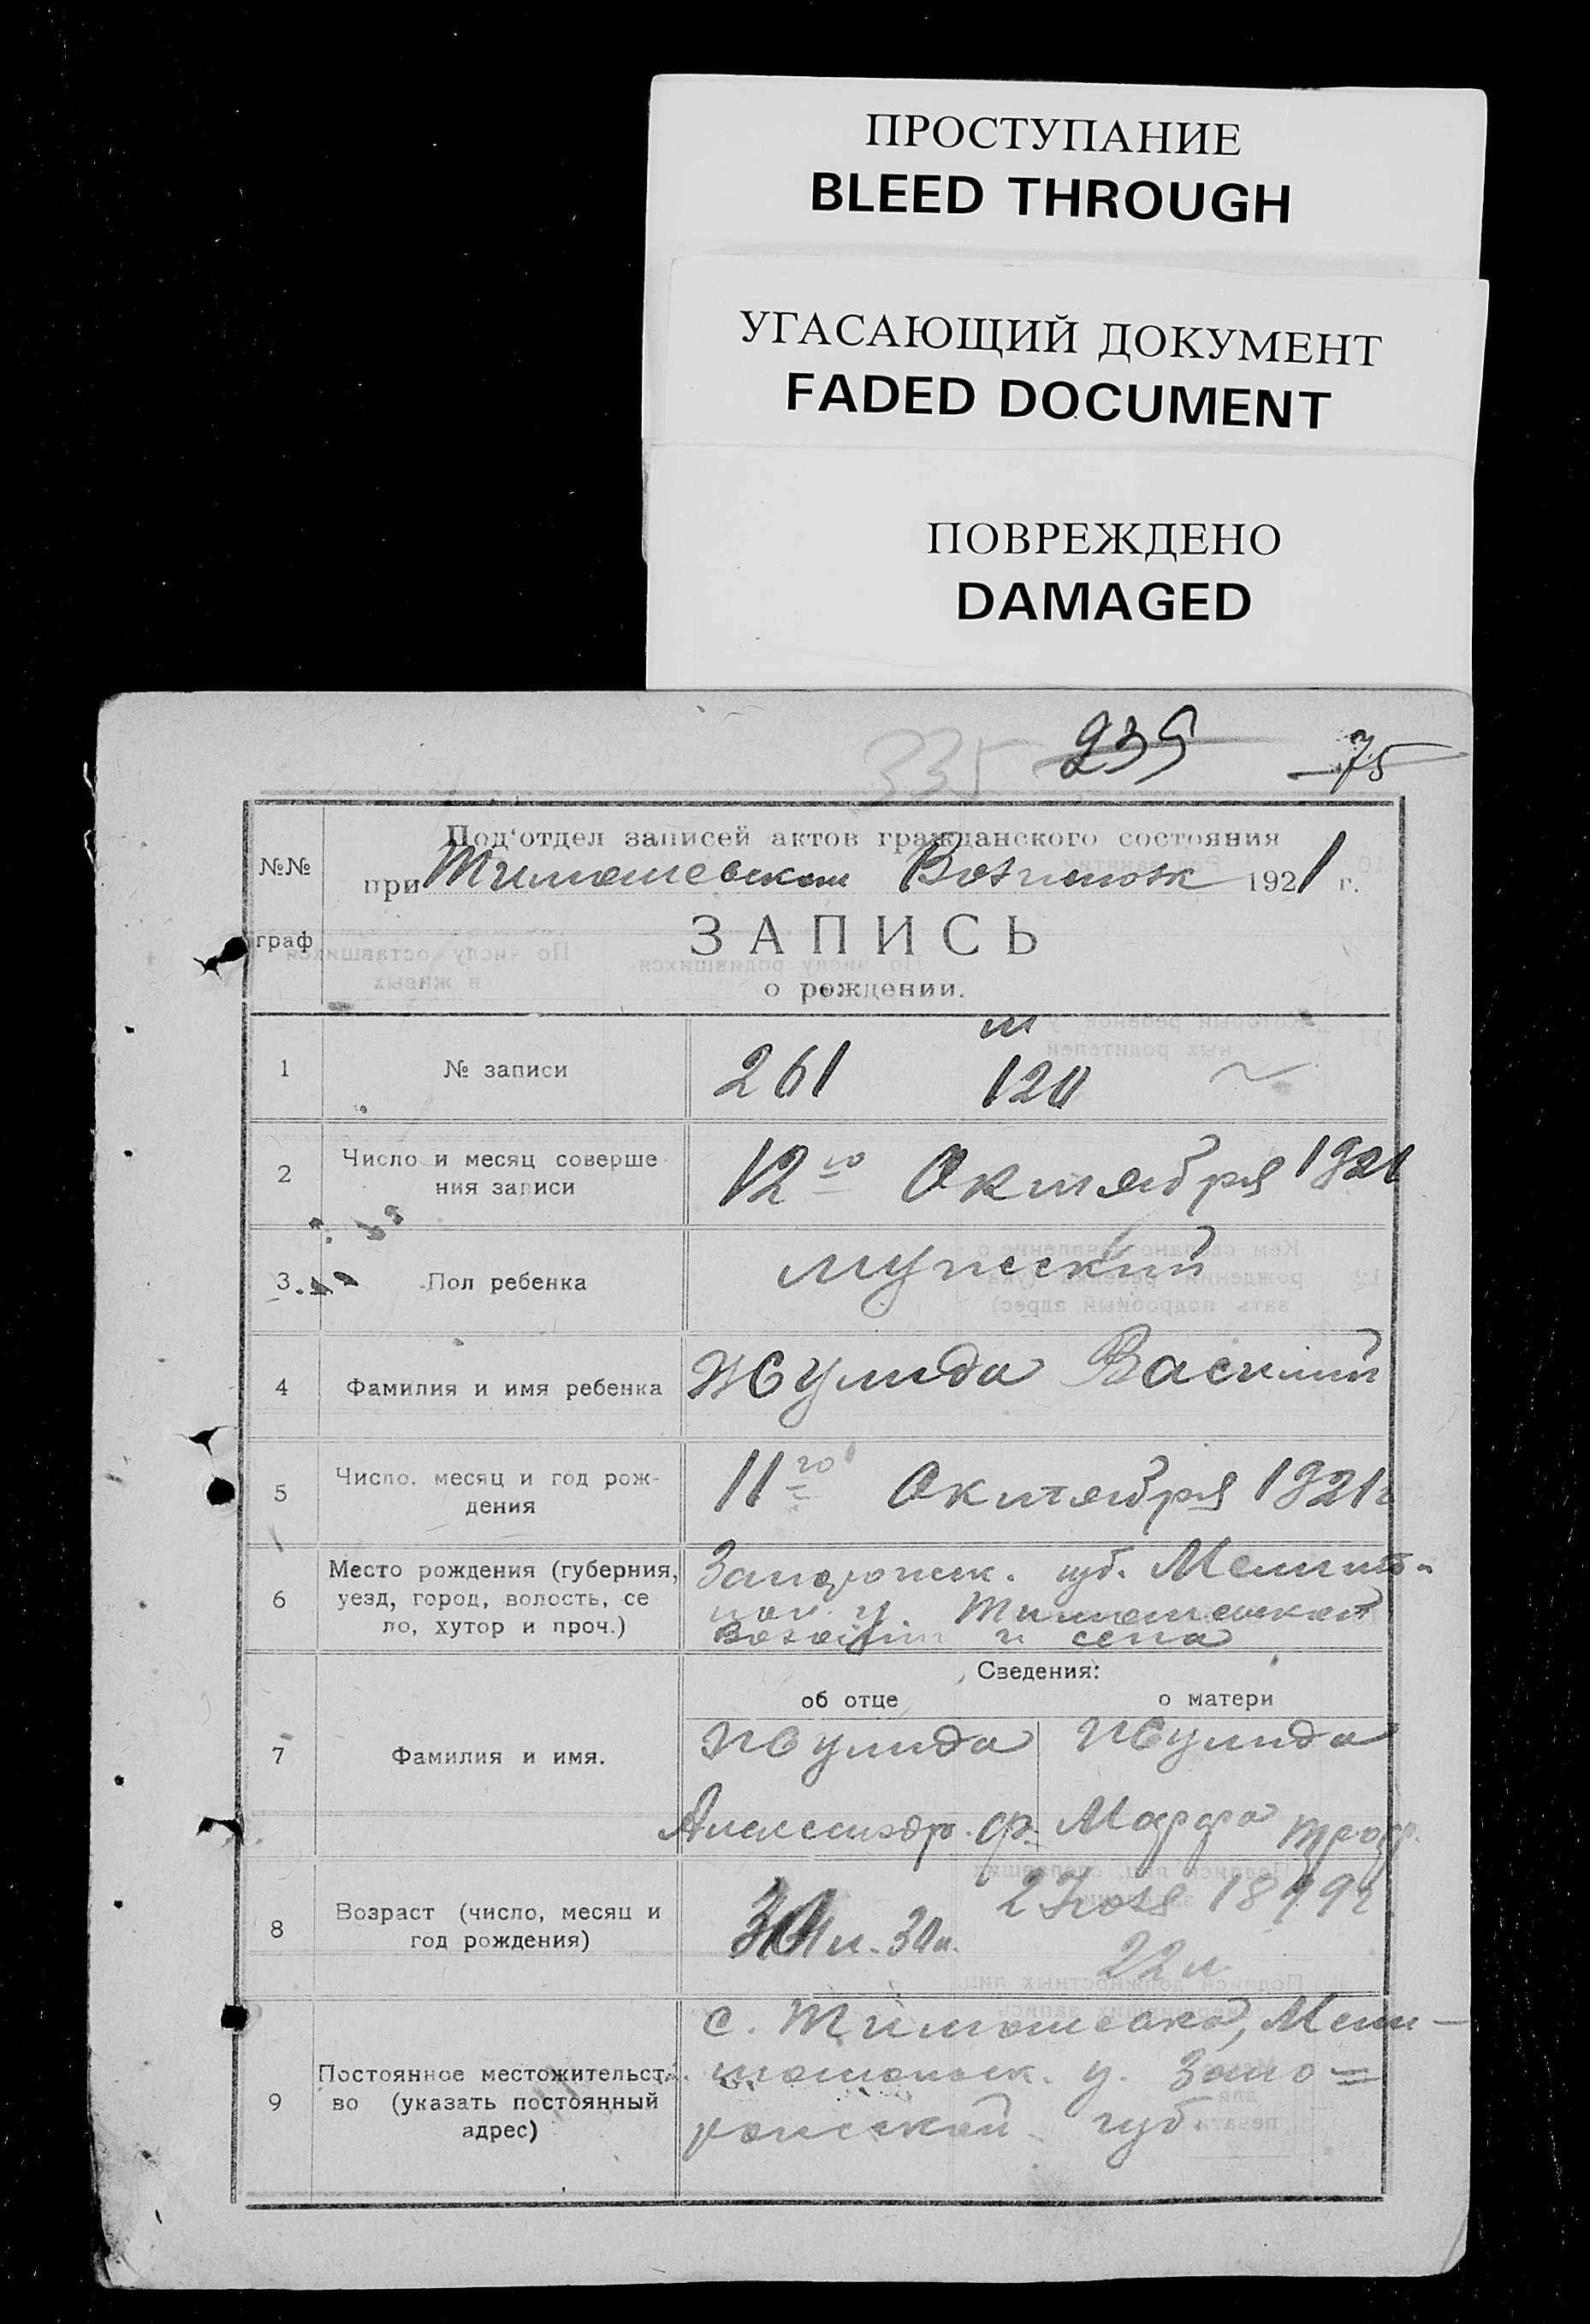 ПРОСТУПАНИЕ
BLEED THROUGH
УГАСАЮЩИЙ ДОКУМЕНТ
FADED DOCUMENT
ПОВРЕЖДЕНО
DAMAGED
335 235 75
№№ граф
Под'отдел записей актов гражданского состояния
при Тимошевском 1921 г.
ЗАПИСЬ
о рождении.
1 № записи 261 м 120
2 Число и месяц соверше
ния записи 12го Октября 1921
3 Пол ребенка мужской
4 Фамилия и имя ребенка Жулида Василий
5 Число. месяц и год рож-
дения 11го Октября 1921г
6 Место рождения (губерния,
уезд, город, волость, се
ло, хутор и проч.) Запорожск. губ. Мелито-
у. Тимошевской
и села
Сведения:
об отце о матери
7 Фамилия и имя. Жулида Жулида
Александр. Ф. Марфа Троф.
8 Возраст (число, месяц и
год рождения) 30л. 1899г.
22 л.
9 Постоянное местожительст.
во (указать постоянный
адрес) с. Тимошевка, Мели-
топольск. у. Запо=
рожской губ.